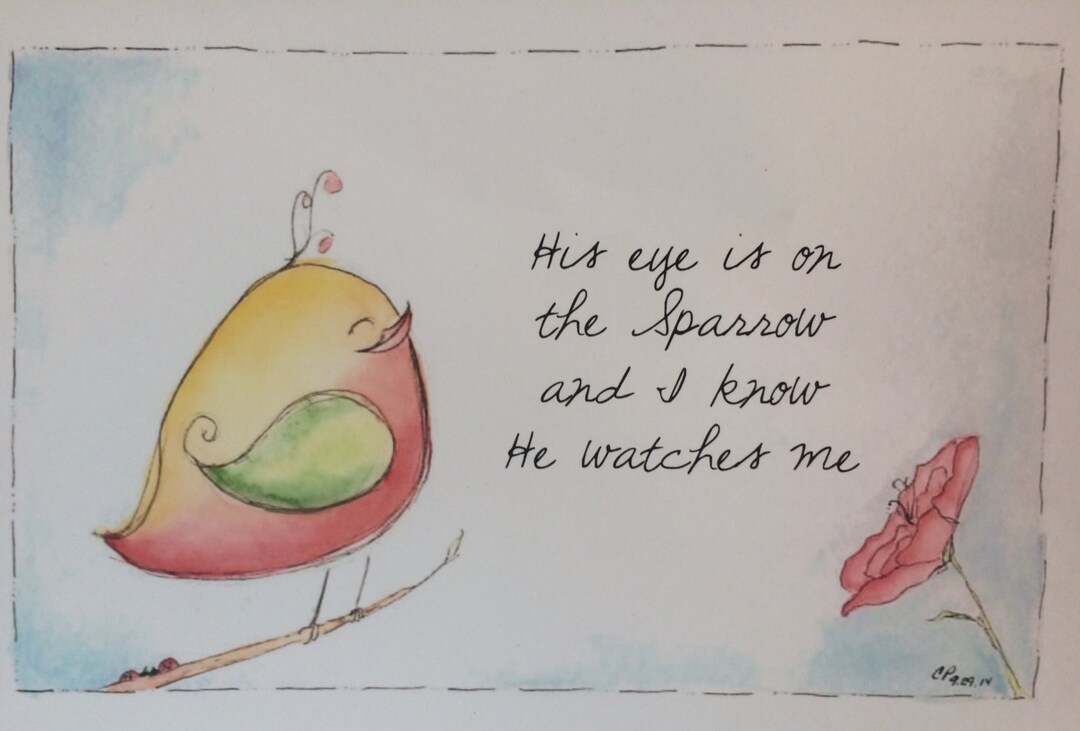 His eye is on
the Sparrow
and I know
He watches me
CP 9.29.14